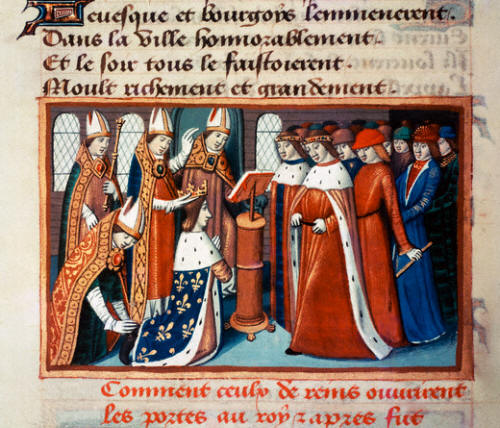 Leuesque et bourgoys lemmenerent.
Dans la ville honnorablement.
Et le soir tous le faistoierent.
Moult richement et grandement
Comment ceulx de reins ouurirent
les portes au roy ⁊ apres fut